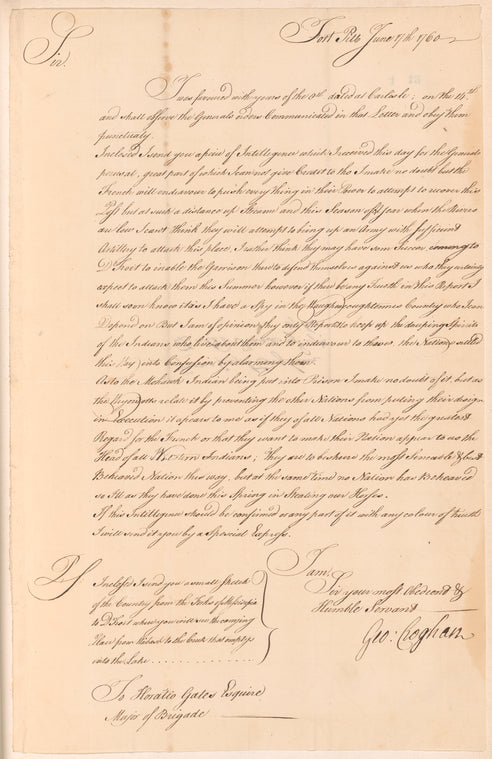 Fort Pitt June 17th 1760
Sir.
I was favoured with yours of the 8th dated at Carlisle; on the 14th
and shall observe the Generals orders Communicated in that Letter and obey them
punctualy.
Inclosed I send you a piece of Intelligence which I received this day for the Generals
perusal, great part of which I can not give Credit to tho I make no doubt but the
French will endeavour to push every thing in their Power to attempt to recover this
Post but at such a distance up Stream and this Season of Year when the Rivers
are low I cant think they will attempt to bring up an Army with sufficient
Artillery to attack this place, I rather think they may have some Succour coming to
D'Troit to inable the Garrison there to defend themselves against us who they certainly
expect to attack them this Summer however if there be any Truth in this Report I
shall soon know it as I have a Spy in the Country who I can
Depend on But I am of opinion they only Report this to keep up the drooping Spirits
of the Indians who live about them and to endeavour to throw the Nations settled
this Way into Confusion by alarming them.
As to the Mohawk Indian being put into Prison I make no doubt of it, but as
the relate it by preventing the other Nations from puting their design
in Execution it apears to me as if they of all Nations had yet the greatest
Regard for the French or that they want to make their Nation appear to us the
Head of all Western Indians; They are to be shure the most Senceable & best
Behaved Nation this way, but at the same time no Nation has Behaved
so Ill as they have done this Spring in Stealing our Horses.
If this Intelligence should be confirmed or any part of it with any colour of truth
I will send it you by a Special Express.
I am,
Sir your most Obedient &
Humble Servant
Geo: Croghan
PS
Inclosed I send you a small Sketch
of the Country from the Forks of
to D'Troit where you will see the carrying
Place from to the Creek that emptys
into the Lake . . . . . . . . . . . . . .
To Horatio Gates Esquire
Major of Brigade